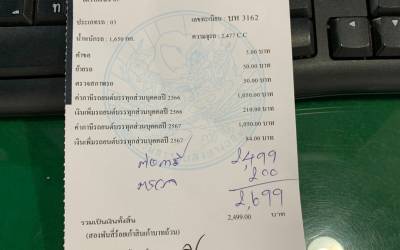 ประเภทรถ : รย เลขทะเบียน : บท 3162
น้ำหนักรถ : 1,650 กก. ความจุรถ : 2,477 C C
คำขอ 5.00 บาท
ย้ายรถ 50.00 บาท
ตรวจสภาพรถ 50.00 บาท
ค่าภาษีรถยนต์บรรทุกส่วนบุคคลปี 2566 1,050.00 บาท
เงินเพิ่มรถยนต์บรรทุกส่วนบุคคลปี 2566 210.00 บาท
ค่าภาษีรถยนต์บรรทุกส่วนบุคคลปี 2567 1,050.00 บาท
เงินเพิ่มรถยนต์บรรทุกส่วนบุคคลปี 2567 84.00 บาท
ต่อภาษี 2,499
ตรวจ 200
2,699
รวมเป็นเงินทั้งสิ้น 2,499.00 บาท
(สองพันสี่ร้อยเก้าสิบเก้าบาทถ้วน)